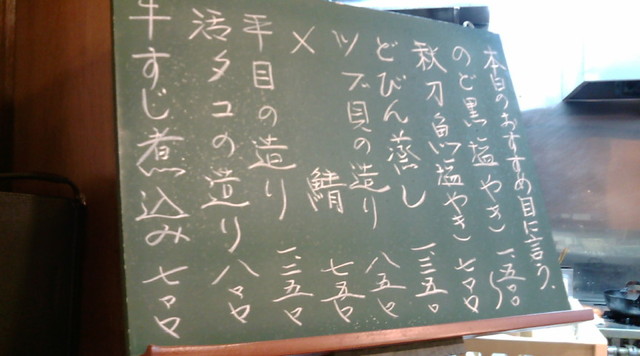 本日のおすすめ目に言う.
のど黒塩やき 一、五〇〇〜
秋刀魚塩やき 七〇〇
どびん蒸し 一、三五〇
ツブ貝の造り 八五〇
〆鯖 七五〇
平目の造り 一、三五〇
活タコの造り 八〇〇
牛すじ煮込み 七〇〇